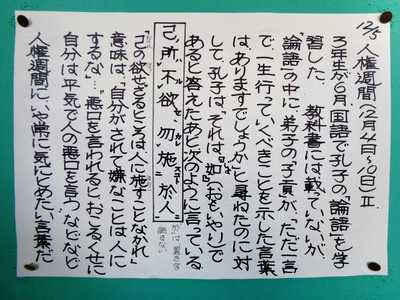 12/5 人権週間(12月4日〜10日)Ⅱ
3年生が6月、国語で孔子の「論語」を学
習した。 教科書には載っていないが、
「論語」の中に、弟子の子貢が、「ただ一言
で、一生行っていくべきことを示した言葉
は、ありますでしょうか」と尋ねたのに対
して、孔子は「それは、『恕』(おもいやり)で
あると答えたあと、次のように言っている。
己所不欲勿施於人
於は置き字
読まない
「己の欲せざるところは人に施すことなかれ」
意味は、「自分がされて嫌なことは人に
するな」…。悪口を言われるとおこるくせに
自分は平気で人の悪口を言う、などなど
人権週間に、いや常に気にとめたい言葉だ